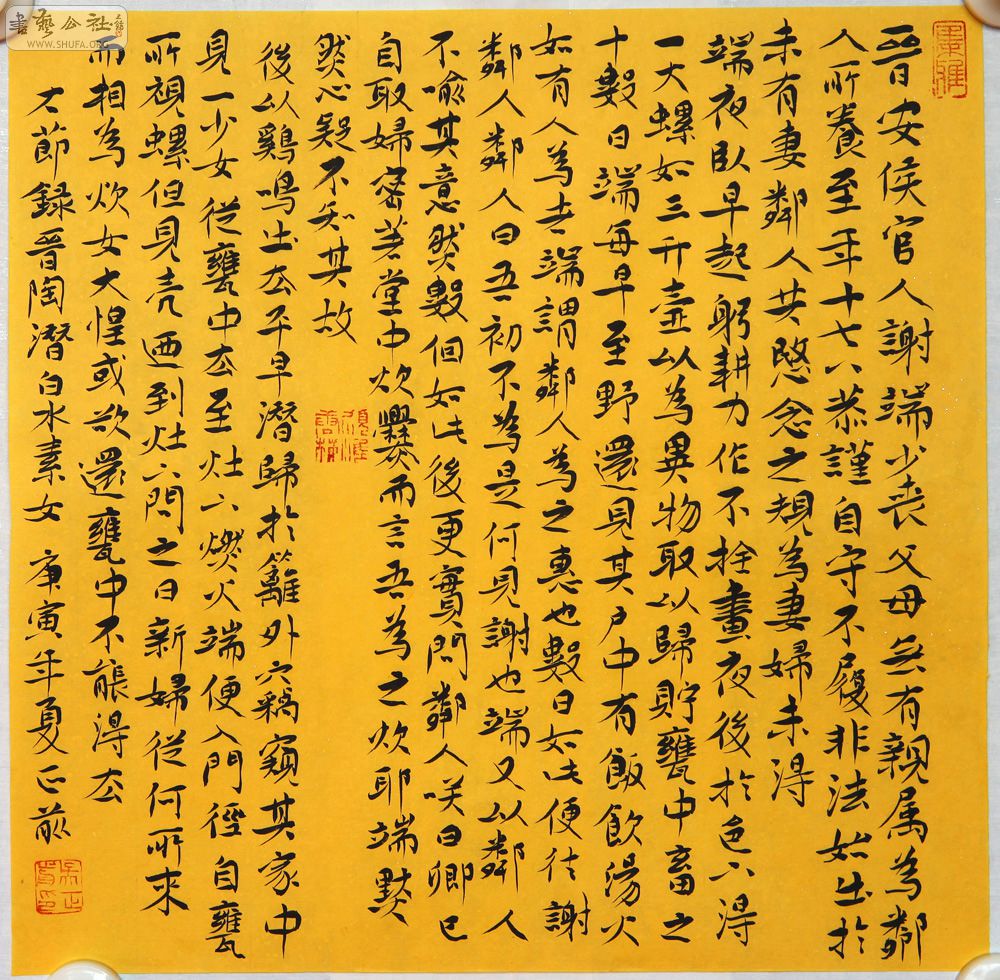 書藝公社
WWW.SHUFA.ORG
晉安侯官人謝端少喪父母無有親属為鄰
人所養至年十七八恭謹自守不履非法始出於
未有妻鄰人共愍念之規為妻婦未得
端夜臥早起躬耕力作不捨晝夜後於邑下得
一大螺如三升壺以為異物取以歸貯甕中畜之
十數日端每早至野還見其戶中有飯飲湯火
如有人為者端謂鄰人為之惠也數日如此便往謝
鄰人鄰人曰吾初不為是何見謝也端又以鄰人
不喻其意然數個如此後更實問鄰人咲曰卿已
自取婦密著堂中炊爨而言吾為之炊耶端默
然心疑不知其故
後以鷄鳴出去平早潛歸於籬外穴竊窺其家中
見一少女從甕中去至灶下燃火端便入門徑自甕
所視螺但見壳迺到灶下問之曰新婦從何所來
而相為炊女大惶或欲還甕中不能得去
大節録晉陶潛白水素女 庚寅年夏正前